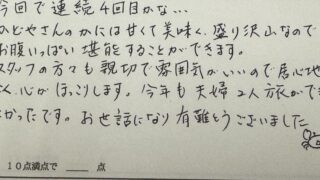 今回で連続4回目かな…
かどやさんのかには甘くて美味く、盛り沢山なので
お腹いっぱい堪能することができます。
スタッフの方々も親切で雰囲気がいいので居心地
く、心がほっこりします。今年も夫婦2人旅ができ
かったです。お世話になり有難とうございました
10点満点で 点